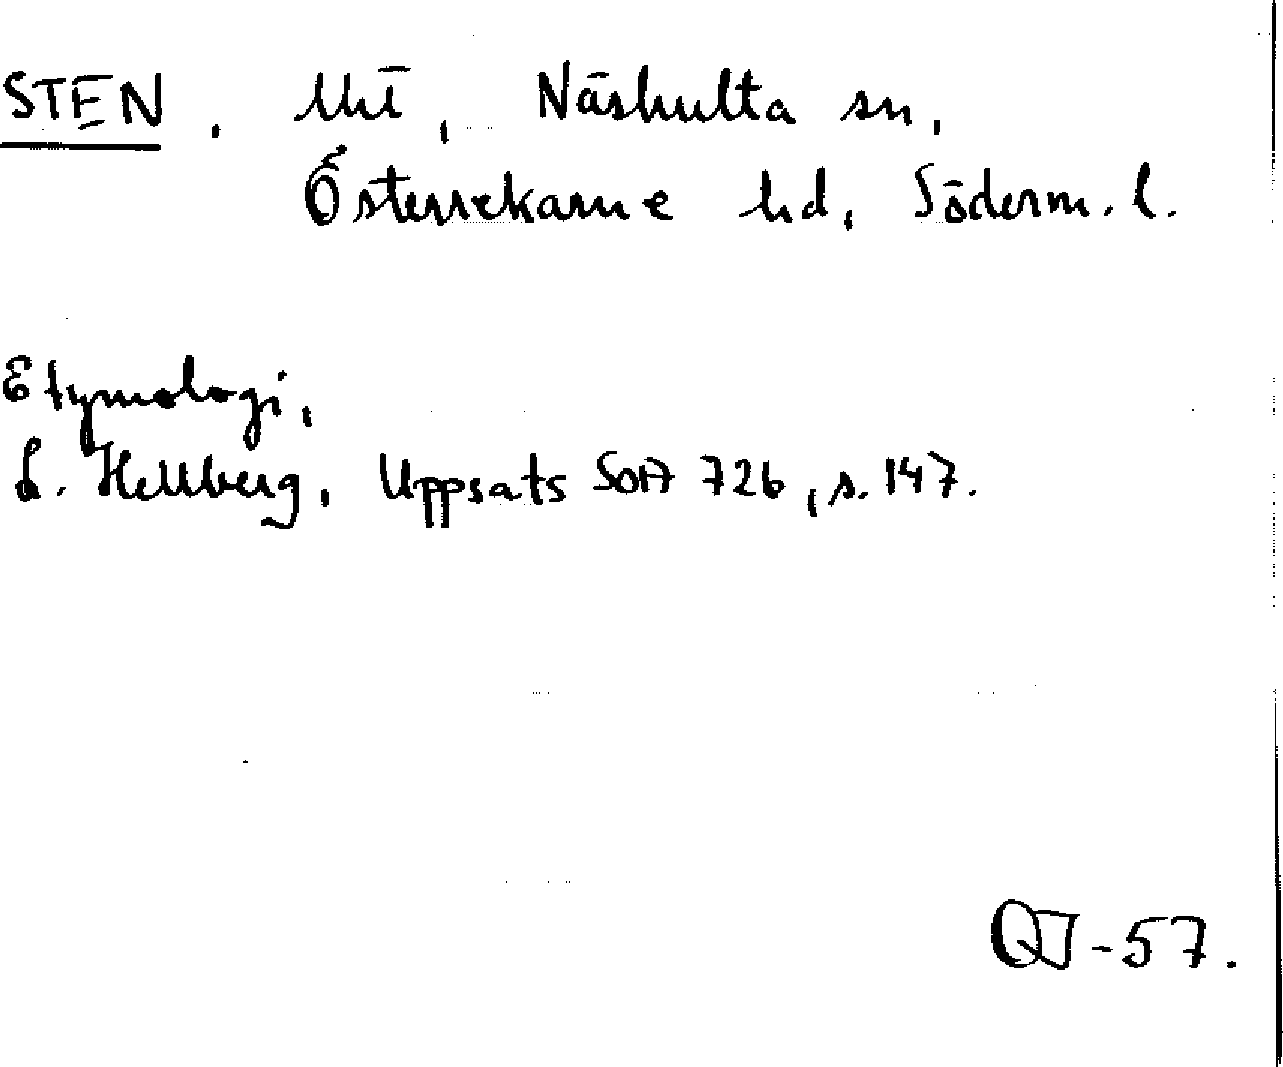 STEN, Näshulta sn,
Österrekarne hd, Söderm. l.
Etymologi,
L. Hellberg, Uppsats SOA 726, s. 147.
-57.